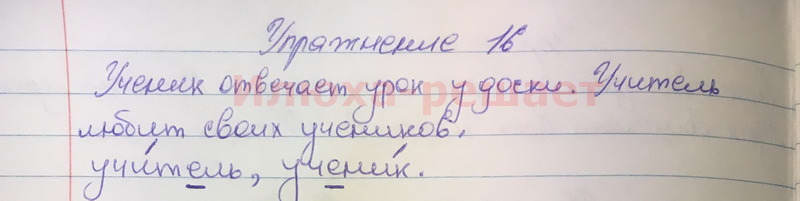 Упражнение 16
Ученик отвечает урок у доски. Учитель
любит своих учеников.
учи́тель, учени́к.
Илюха решает